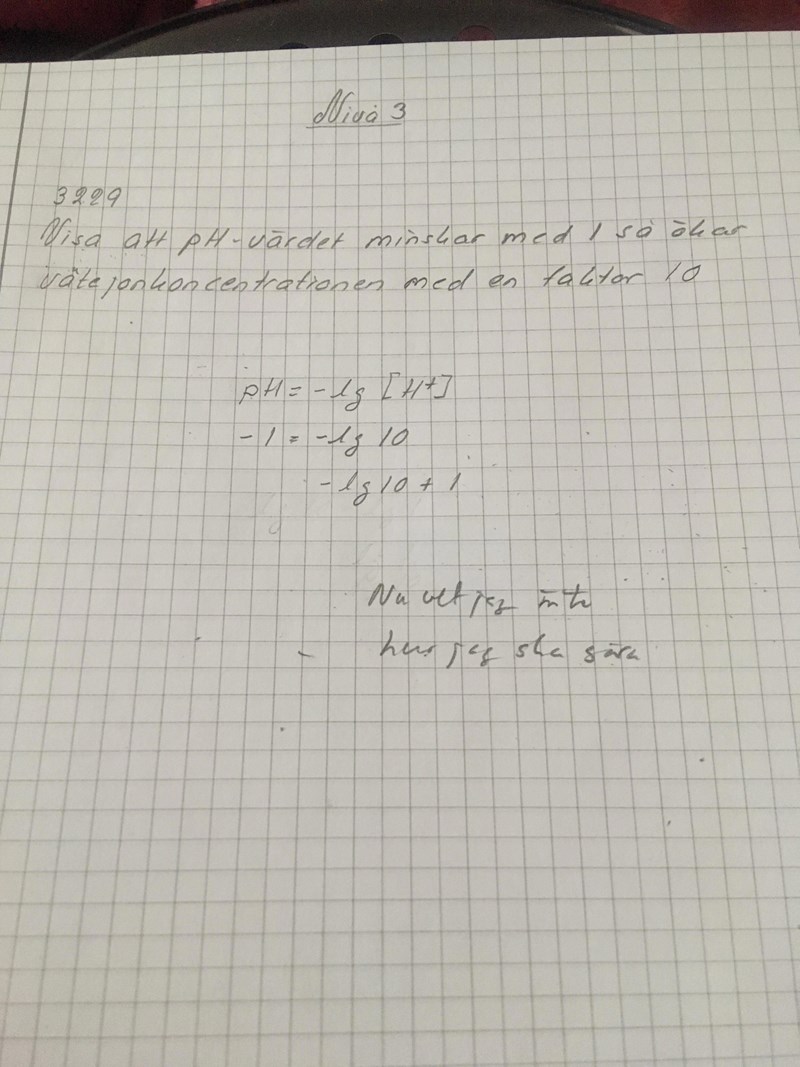 Nivå 3
3229
Visa att pH-värdet minskar med 1 så ökar
vätejonkoncentrationen med en faktor 10
pH = -lg [H+]
-1 = -lg 10
-lg 10 + 1
Nu vet jag inte
hur jag ska göra